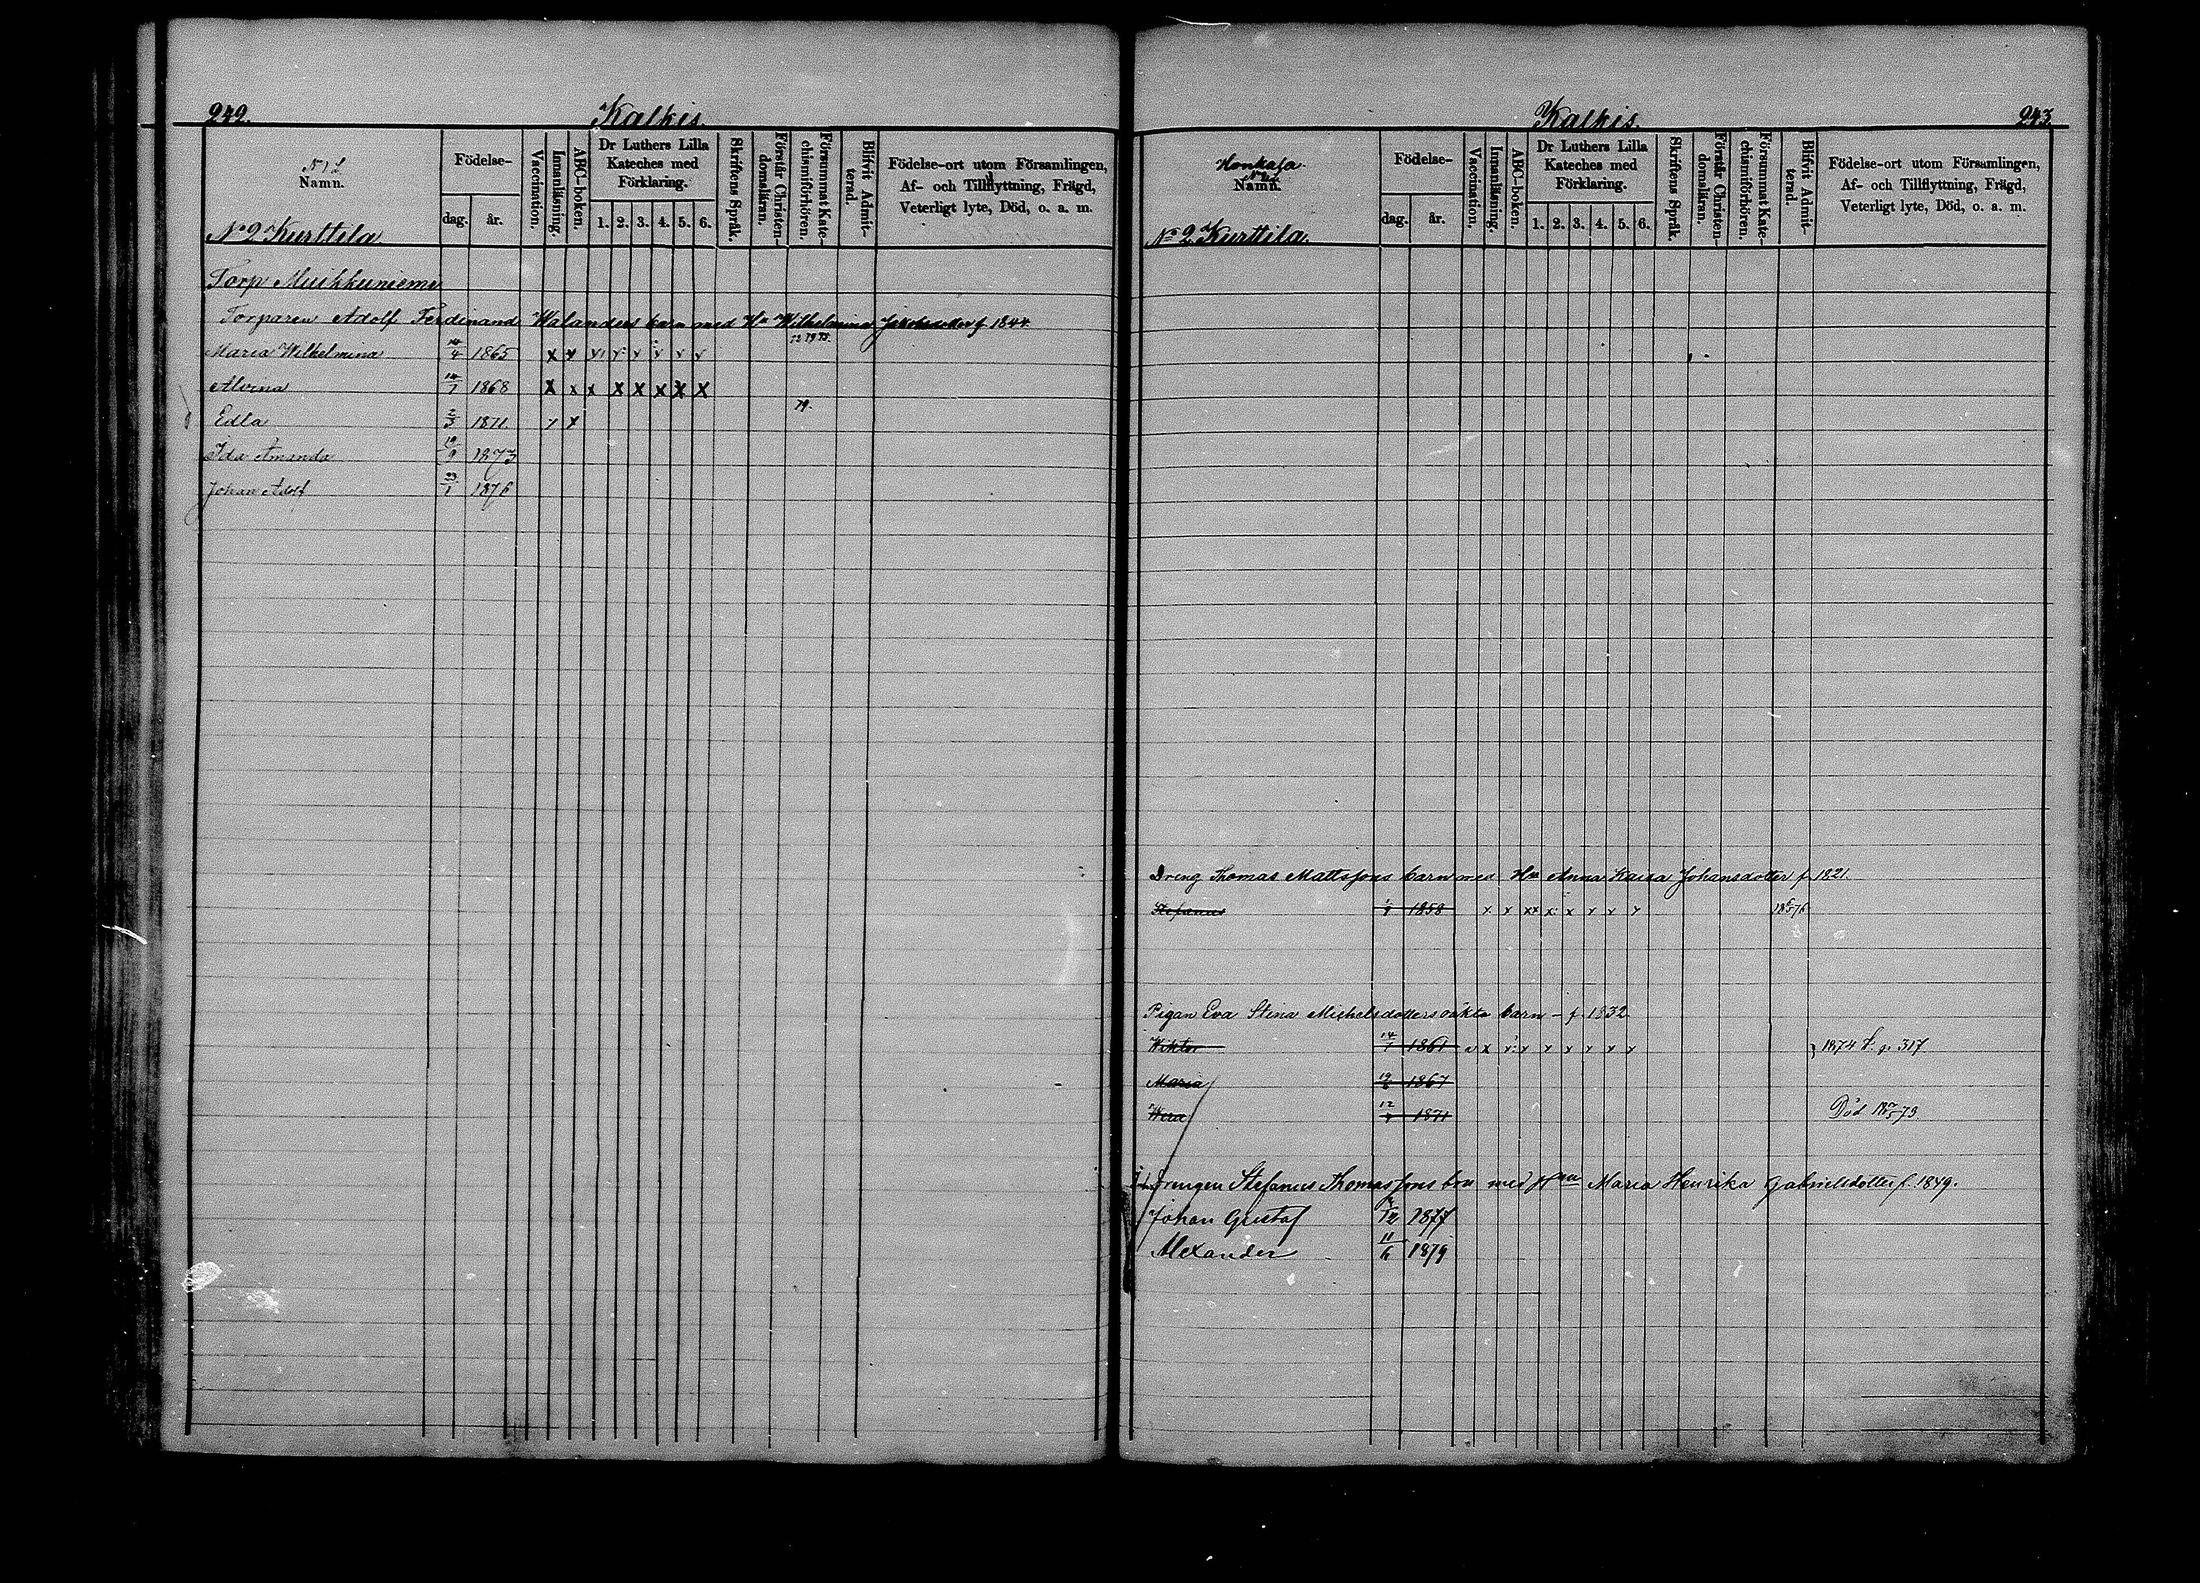 242. Kalkis.
Namn. Födelse- dag. år. Vaccination. Innanläsning. ABC-boken. Dr Luthers Lilla Kateches med Förklaring. 1. 2. 3. 4. 5. 6. Skriftens Språk. Förstår Christendomsläran. Försummat Katechismiförhören. Blifvit Admitterad. Födelse-ort utom Församlingen, Af- och Tillflyttning, Frägd, Veterligt lyte, Död, o. a. m.
No 2 Kurttila
Torp Muikkuniemi
Torparen Adolf Ferdinand Walanders barn med Hu Wilhelmina Jakobsdotter f 1844
Maria Wilhelmina 4 1865 x x x x x x x x
Alvina 14/1 1868 X x x x x x x X
79.
Edla 2/3 1871 x x
Ida Amanda 19/9 1873
Johan Adolf 23/1 1876
Kalkis. 243.
Honkala
Namn. Födelse- dag. år. Vaccination. Innanläsning. ABC-boken. Dr Luthers Lilla Kateches med Förklaring. 1. 2. 3. 4. 5. 6. Skriftens Språk. Förstår Christendomsläran. Försummat Katechismiförhören. Blifvit Admitterad. Födelse-ort utom Församlingen, Af- och Tillflyttning, Frägd, Veterligt lyte, Död, o. a. m.
No 2 Kurttila.
Dreng Thomas Mattssons barn med Hu Anna Kaisa Johansdotter f 1821.
Stefanus 1858 x x xx x x x x x
Pigan Eva Stina Michelsdotters oäkta barn – f. 1832
Wiktor 14/1 1861 x x x x x x x 1874 p. 317
Maria 1867
Wera 12 1871 Död 73
Drengen Stefanus Thomassons barn med Hun Maria Henrika Gabrielsdotter f. 1849.
Johan Gustaf 7/12 1877
Alexander 11/6 1879